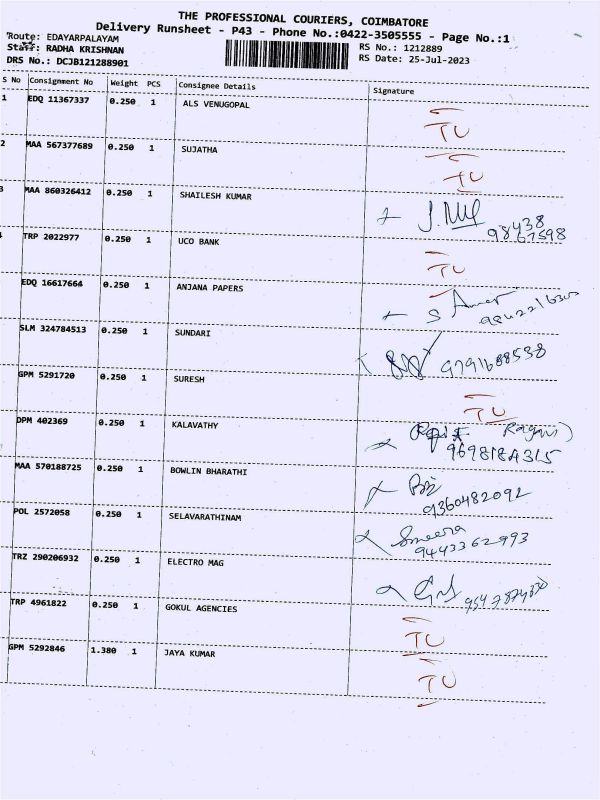 THE PROFESSIONAL COURIERS, COIMBATORE
Delivery Runsheet - P43 - Phone No.:0422-3505555 - Page No.:1
Route: EDAYARPALAYAM
Staff: RADHA KRISHNAN
RS No.: 1212889
DRS No.: DCJB121288901
RS Date: 25-Jul-2023
S No Consignment No Weight PCS Consignee Details Signature
1 EDQ 11367337 0.250 1 ALS VENUGOPAL TU
2 MAA 567377689 0.250 1 SUJATHA TU
3 MAA 860326412 0.250 1 SHAILESH KUMAR
98438
67598
TRP 2022977 0.250 1 UCO BANK TU
EDQ 16617664 0.250 1 ANJANA PAPERS
SLM 324784513 0.250 1 SUNDARI 9791688538
GPM 5291720 0.250 1 SURESH TU
DPM 402369 0.250 1 KALAVATHY
MAA 570188725 0.250 1 BOWLIN BHARATHI
9360482092
POL 2572058 0.250 1 SELAVARATHINAM Smeera
9443362993
TRZ 290206932 0.250 1 ELECTRO MAG
TRP 4961822 0.250 1 GOKUL AGENCIES TU
GPM 5292846 1.380 1 JAYA KUMAR TU